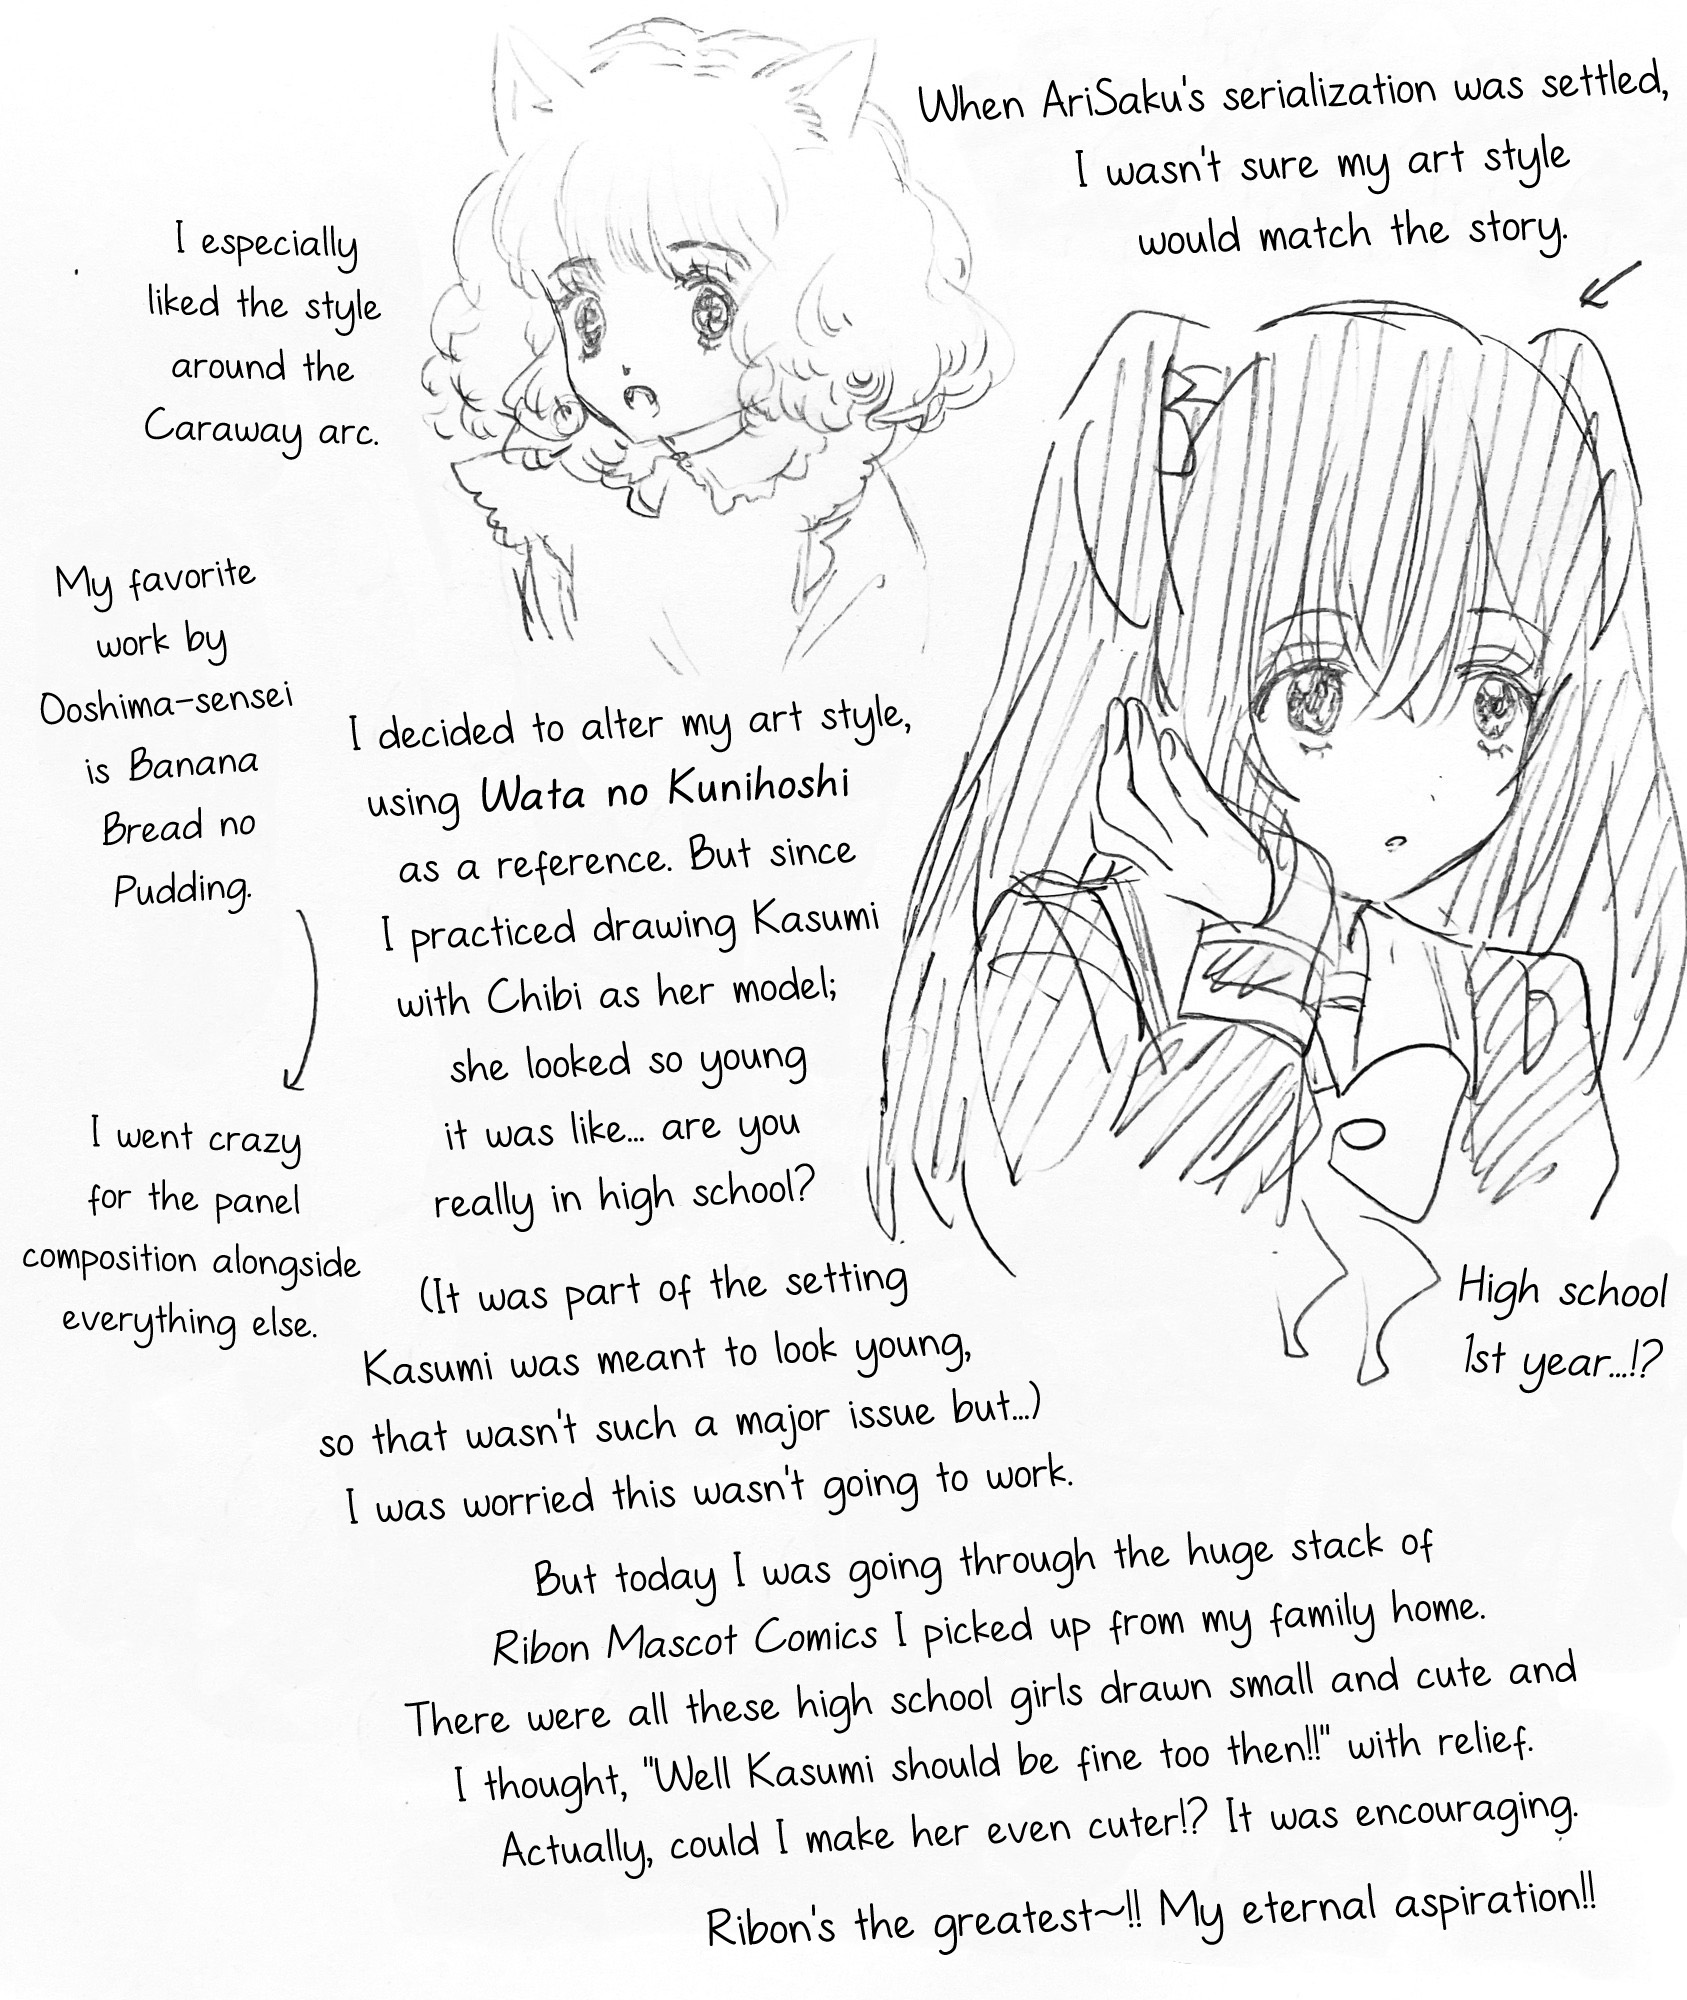 When AriSaku's serialization was settled,
I wasn't sure my art style
would match the story.
I especially
liked the style
around the
Caraway arc.
My favorite
work by
Ooshima-sensei
is Banana
Bread no
Pudding.
I went crazy
for the panel
composition alongside
everything else.
I decided to alter my art style,
using Wata no Kunihoshi
as a reference. But since
I practiced drawing Kasumi
with Chibi as her model;
she looked so young
it was like... are you
really in high school?
(It was part of the setting
Kasumi was meant to look young,
so that wasn't such a major issue but...)
I was worried this wasn't going to work.
High school
1st year...!?
But today I was going through the huge stack of
Ribon Mascot Comics I picked up from my family home.
There were all these high school girls drawn small and cute and
I thought, "Well Kasumi should be fine too then!!" with relief.
Actually, could I make her even cuter!? It was encouraging.
Ribon's the greatest~!! My eternal aspiration!!